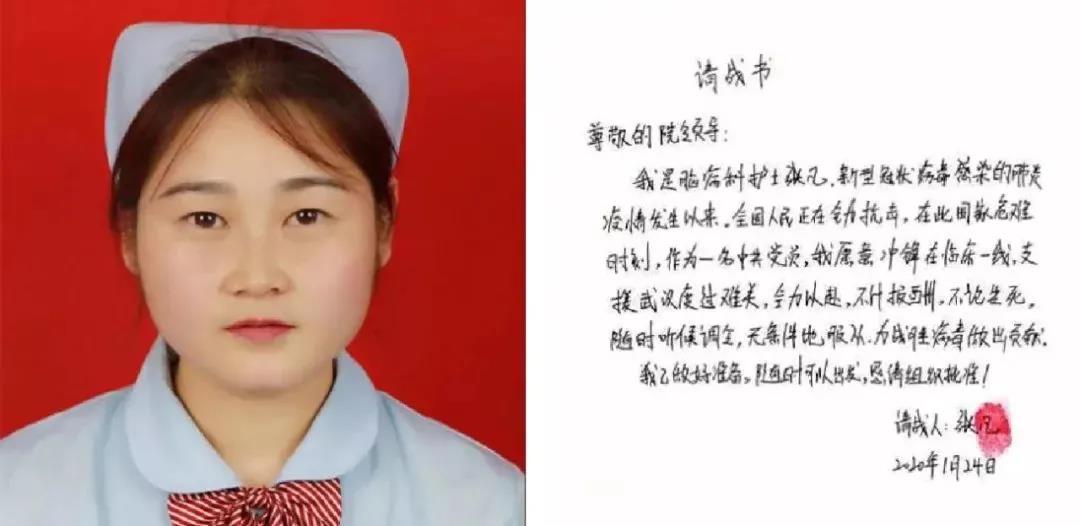 请战书
尊敬的院领导：
我是脑病科护士张凡，新型冠状病毒感染的肺炎
疫情发生以来。全国人民正在全力抗击，在此国家危难
时刻，作为一名中共党员，我愿意冲锋在临床一线，支
援武汉度过难关，全力以赴，不计报酬，不论生死。
随时听候调令，无条件地服从，为战胜病毒做出贡献.
我已做好准备，随时可以出发，恳请组织批准！
请战人：张凡
2020年1月24日